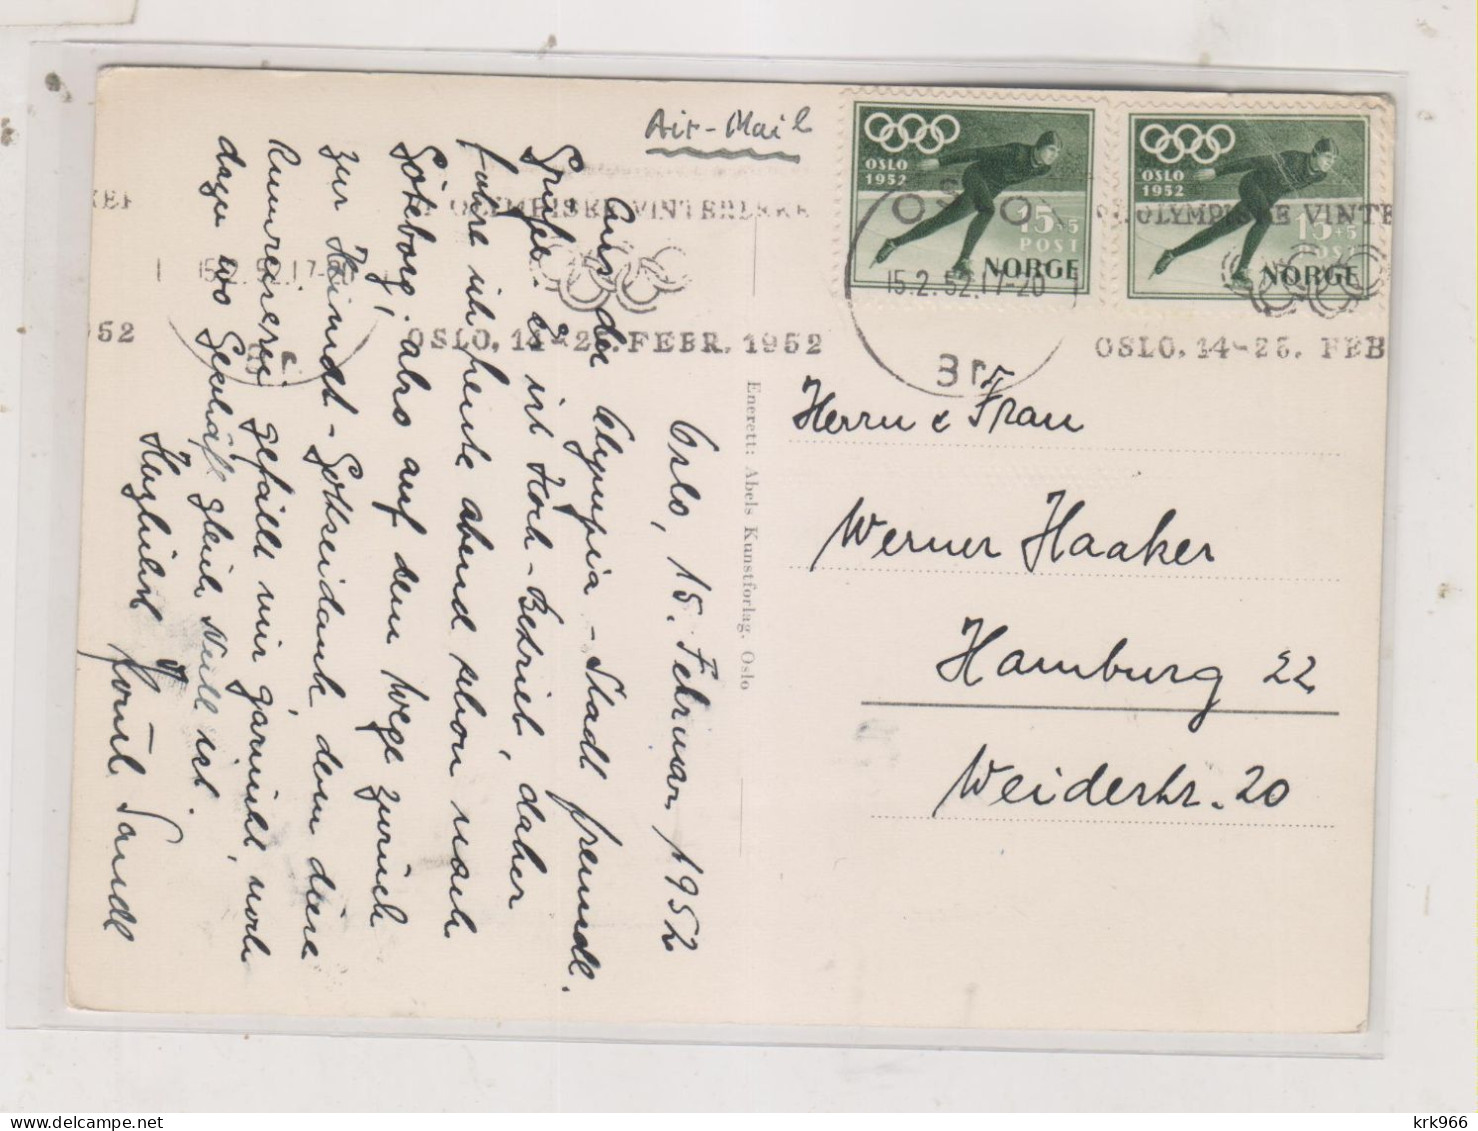 Air-Mail
OSLO
1952
15+5
POST
NORGE
OSLO
1952
15+5
POST
NORGE
OSLO
15.2.52.17-20
OLYMPISKE VINTERLEKE
OSLO, 14-25. FEBR. 1952
OLYMPISKE VINTE
OSLO, 14-25. FEB
952
Oslo, 15. Februar 1952
Aus der Olympia-Stadt freundl.
Grüße. Es ist Hoch-Betrieb, daher
fahre ich heute abend schon nach
Göteborg, also auf dem Wege zurück
zur Heimat - Gottseidank, denn diese
Rumreiserei gefällt mir garnicht, noch
dazu wo Geschäft gleich Null ist.
Herzlichst
Enerett: Abels Kunstforlag, Oslo
Herrn & Frau
Werner Haaker
Hamburg 22
Weiderstr. 20
krk966